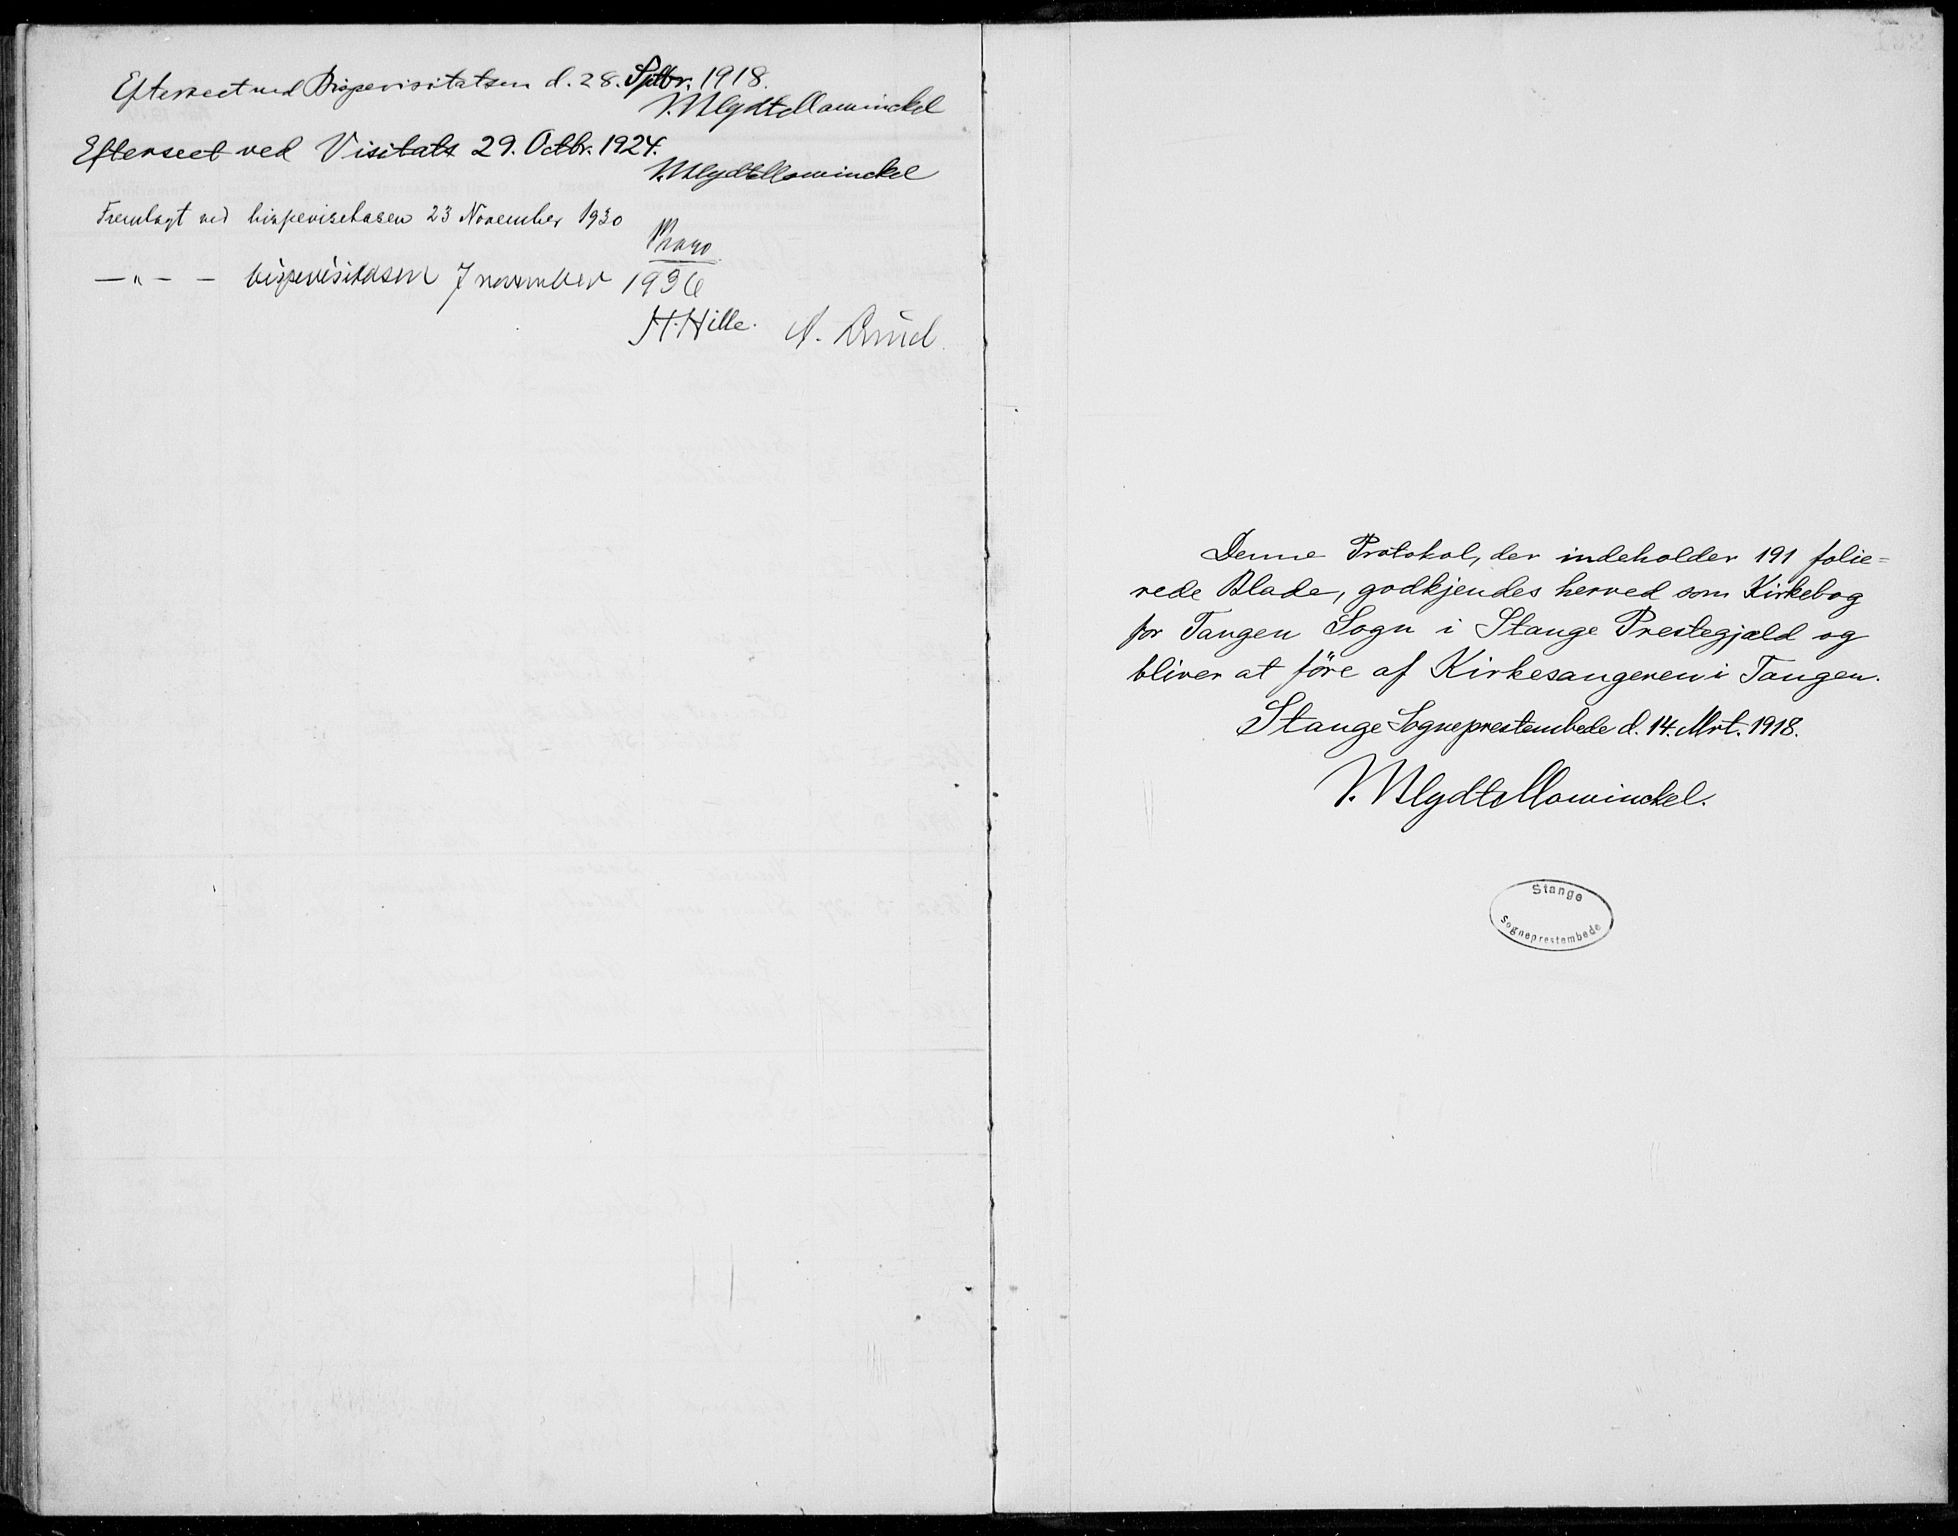 Efterseet ved Bispevisitatsen d. 28. Septbr. 1918.
V. Blydt Mowinckel
Efterseet ved Visitats 29. Octbr. 1924.
V. Blydt Mowinckel
Fremlagt ved bispevisitasen 23 November 1930
— " — — bispevisitasen 7 november 1936
H. Hille. A.
Denne Protokol, der indeholder 191 folie=
rede Blade, godkjendes herved som Kirkebog
for Tangen Sogn i Stange Prestegjæld og
bliver at före af Kirkesangeren i Tangen.
Stange Sogneprestembede d. 14. Mrt. 1918.
V. Blydt Mowinckel.
Stange
Sogneprestembede